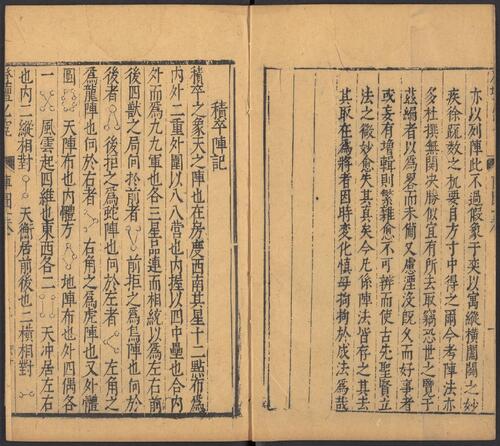 亦以列陣此不過假象于奕以寓縱橫闔闢之妙
疾徐疏数之机要自方寸中得之爾今考陣法亦
多杜撰無関决勝似宜有所去取竊恐世之覽于
茲編者以為畧而未備又慮湮没既久而好事者
或妄有增輯則繁雜愈不可辨而使古先聖賢立
法之微妙愈失其真矣今凡係陣法皆存之其去
其取在為將者因時變化慎毋拘拘於成法為哉
積卒陣記
積卒之象天之陣也在房度西南其星十二㸃布為
内外二重外圍以八八營也内握以四中壘也合内
外而為九九軍也各三星品連而相統以為左右前
後四獸之局向於前者 前拒之為鳥陣也向於
後者 後拒之為蛇陣也向於左者 左角之
為龍陣也向於右者 右角之為虎陣也又外體
圓 天陣布也内體方 地陣布也外四偶各
一 風雲起四維也東西各二 天冲居左右
也内二縱相對 天衡居前後也二橫相對
陣圖